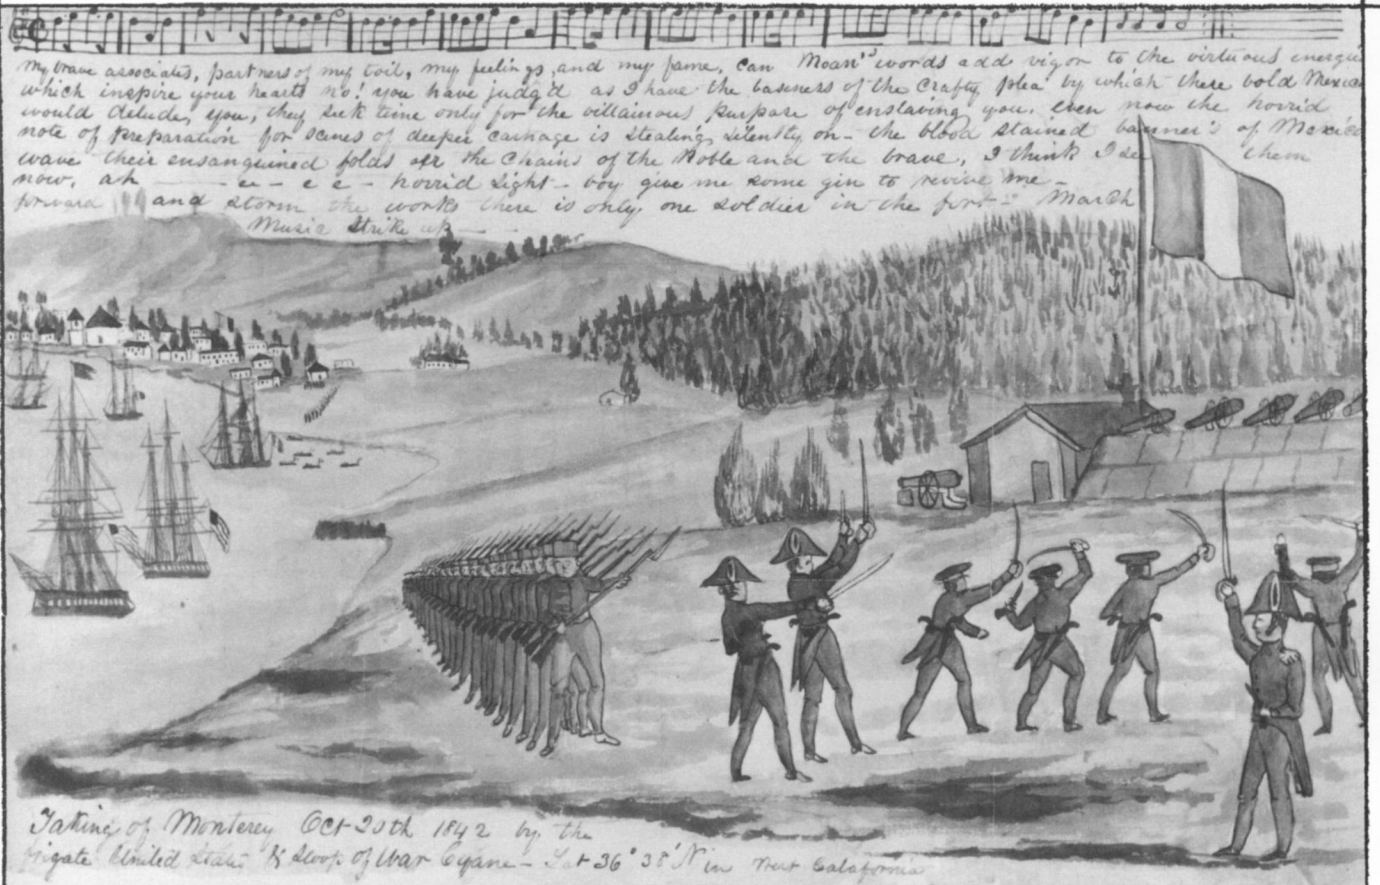 my brave associates, partners of my toil, my feelings, and my fame, can words add vigor to the virtuous energies
which inspire your hearts no! you have judg'd as I have the baseness of the crafty plea by which these bold Mexicans
would delude, you, they seek time only for the villainous purpose of enslaving you, even now the horrid
note of preparation for scenes of deeper carnage is stealing silently on - the blood stained banner's of Mexico
wave their ensanguined folds o'er the chains of the Noble and the brave, I think I see them
now, ah - horrid sight - boy give me some gin to revive me -
forward and storm the works there is only one soldier in the fort - March
Music Strike up -
Taking of Monterey Oct 20th 1842 by the
frigate United States & Sloop of War Cyane - Lat 36° 38' N in California